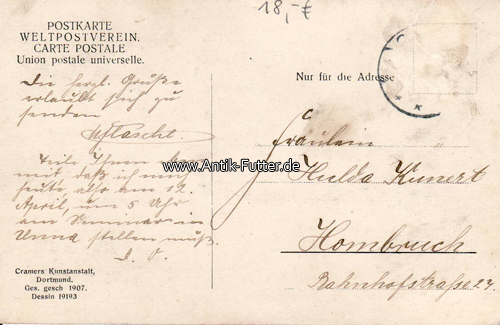 18,-€
POSTKARTE
WELTPOSTVEREIN.
CARTE POSTALE
Union postale universelle.
Nur für die Adresse
Die herzl. Grüße
erlaubt sich zu
senden
Teile Ihnen
mit, daß ich
heute, also am 12.
April, um 5 Uhr
am Seminar in
Unna stellen muß.
D. O.
Fräulein
Hulda Kunert
Hombruch
Bahnhofstraße 27.
www.Antik-Futter.de
Cramers Kunstanstalt,
Dortmund.
Ges. gesch 1907.
Dessin 19193